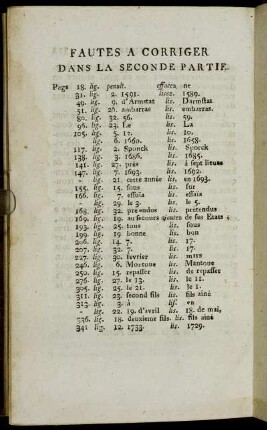 FAUTES A CORRIGER
DANS LA SECONDE PARTIE.
Page 18. lig. penult. effacez ne
31. lig. 2. 1591. lisez. 1589.
49. lig. 9. d'Armstat lis. Darmstat
51. lig. 26. embarras lis. embarras.
80. lig. 32. 56. lis. 59.
96. lig. 23. Le lis. La
105. lig. 5. 17. lis. 10.
- lig. 6. 1660. lis. 1658.
117. lig. 2. Sponck lis. Sporck
138. lig. 3. 1686. lis. 1685.
141. lig. 27. près lis. à sept lieues
147. lig. 7. 1693. lis. 1692.
- lig. 21. cette année lis. en 1693.
155. lig. 15. sous lis. sur
166. lig. 7. essuia lis. essuïa
- lig. 29. le 3. lis. le 5.
168. lig. 32. prendos lis. prétendus
169. lig. 19. au secours lis. contre de ses Etats;
193. lig. 25. tous lis. sous
199. lig. 19. bonne lis. bon
206. lig. 14. 7. lis. 17.
207. lig. 32. 7. lis. 17.
227. lig. 30. fevrier lis. mars
246. lig. 6. Mantoue lis. Mantoue
250. lig. 15. repasser lis. de repasser
276. lig. 27. le 13. lis. le 11.
305. lig. 25. le 21. lis. le 1.
311. lig. 23. second fils lis. fils ainé
313. lig. 3. à lis. en
- lig. 22. 19. d'avril lis. 18. de mai,
336. lig. 18. deuxieme fils. lis. fils ainé
341 lig. 12. 1733. lis. 1729.